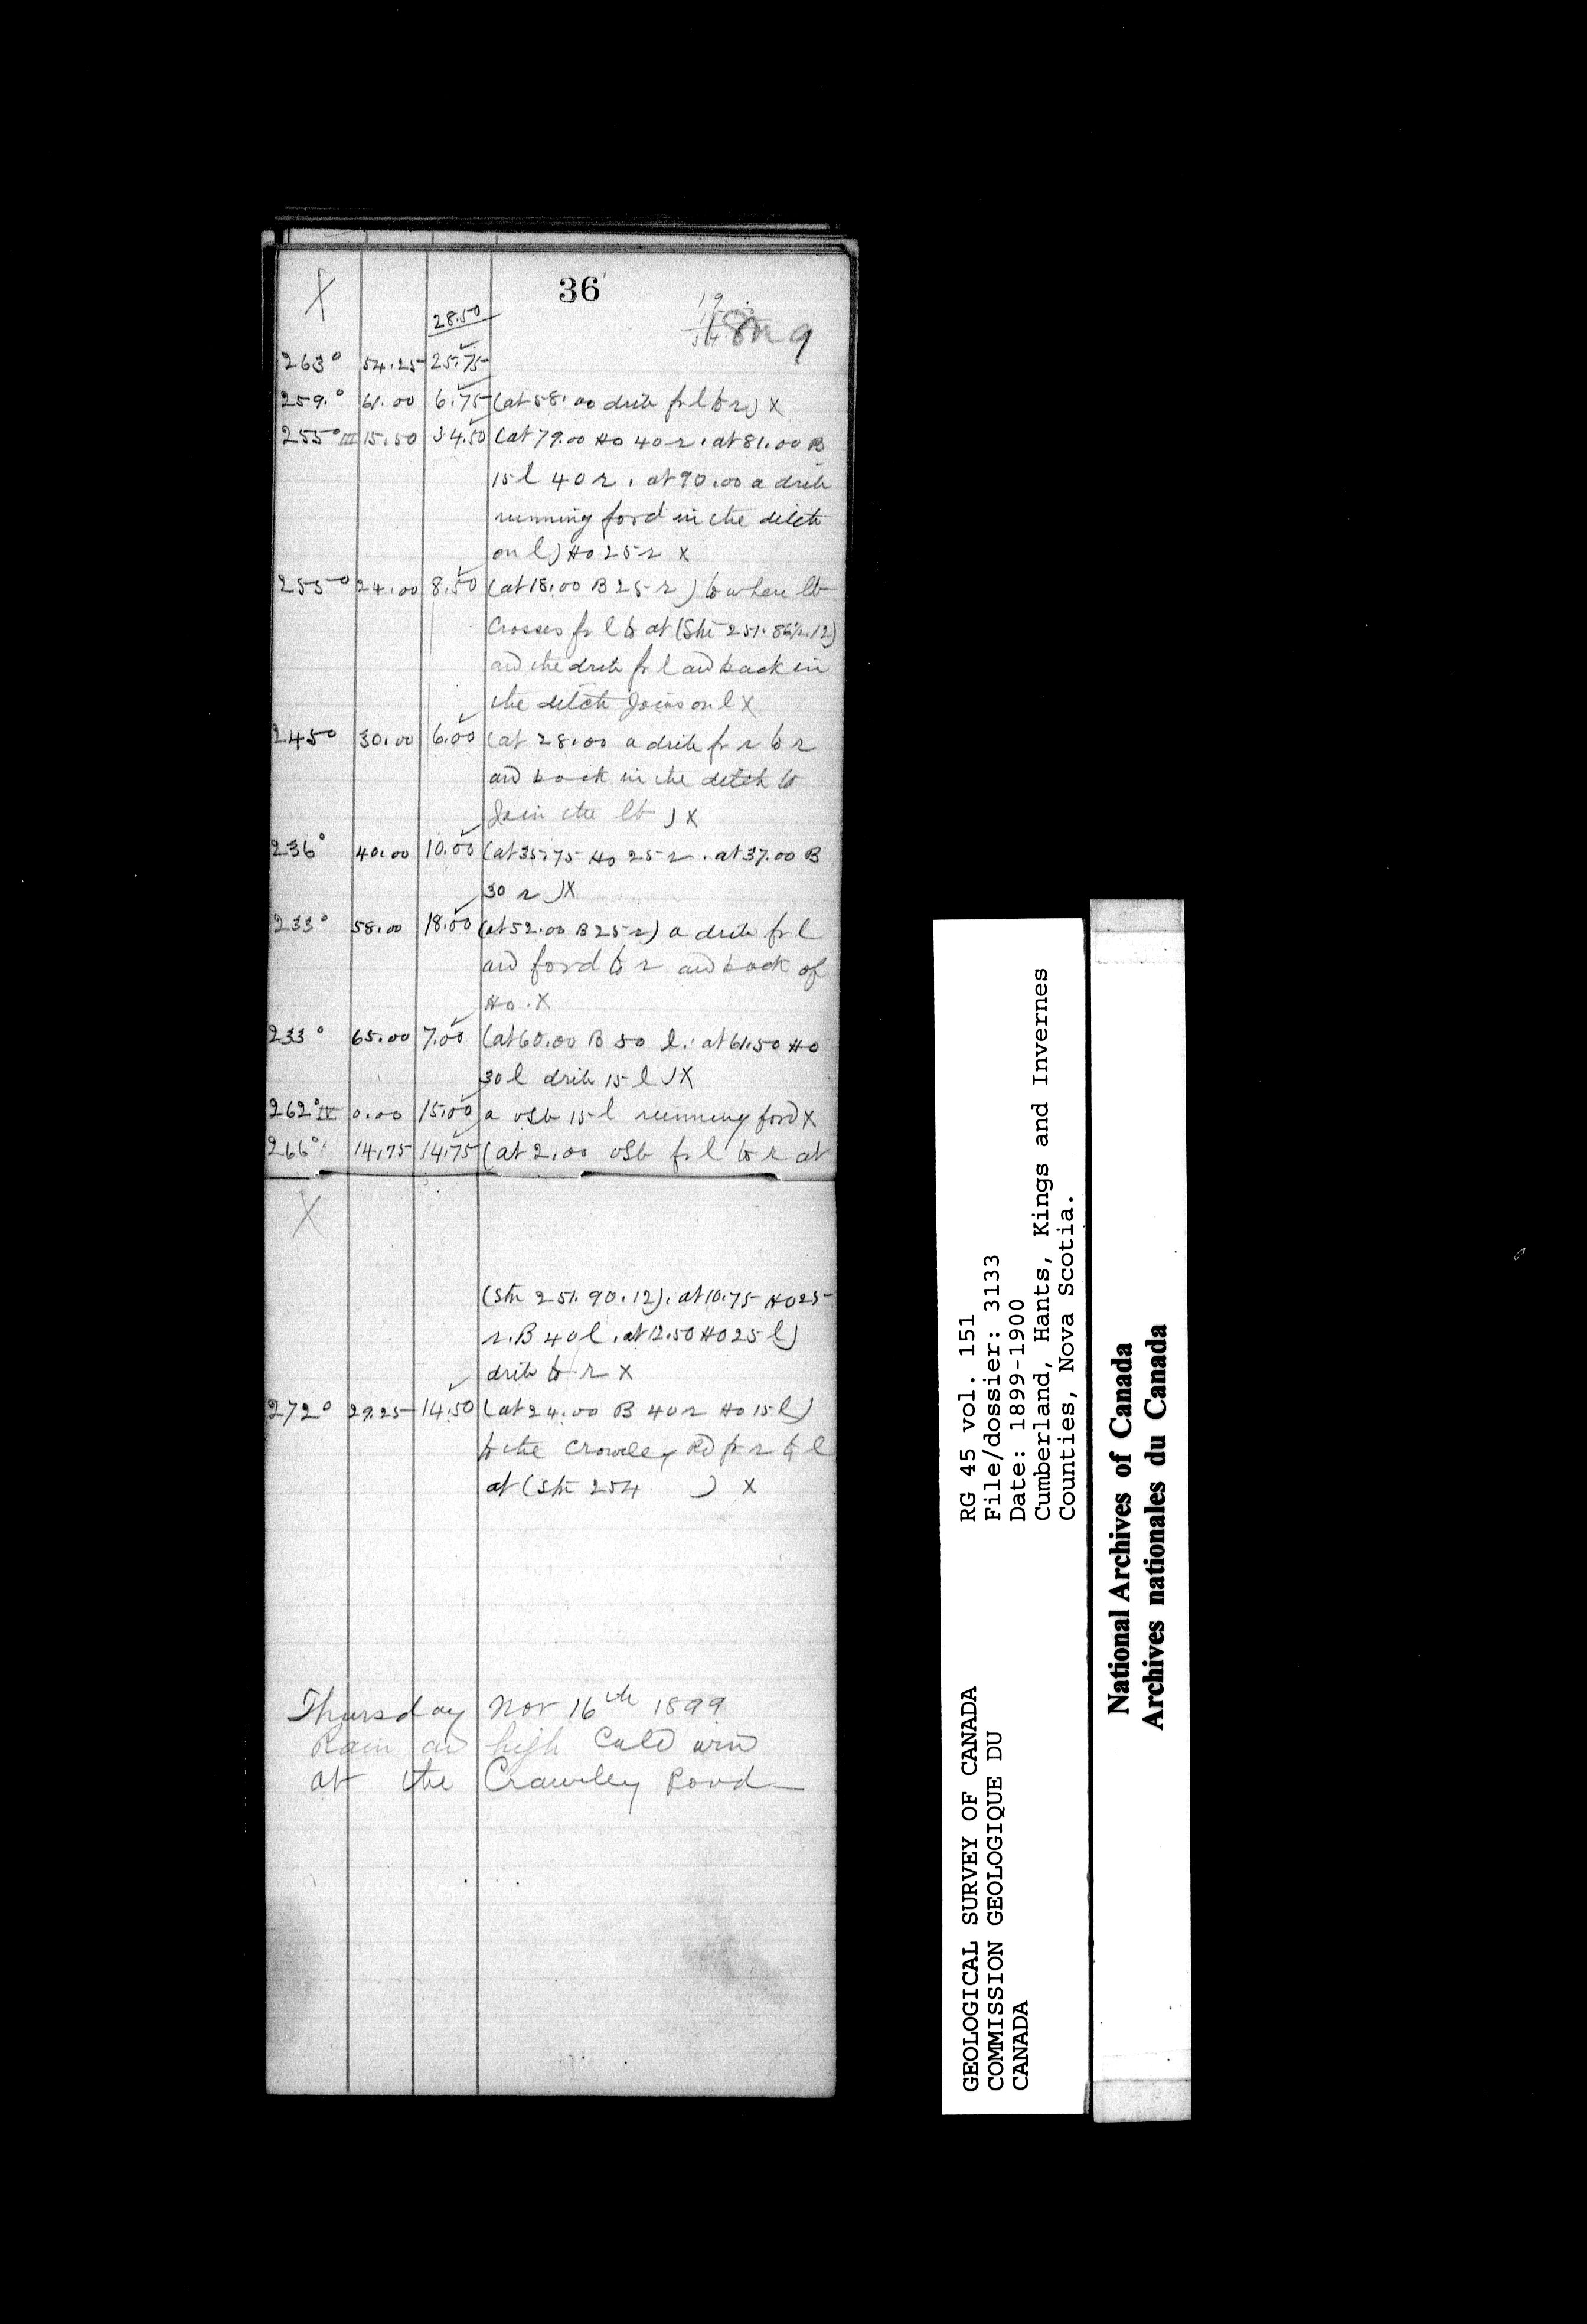 X
36
28.50
19
18
9
263° 54.25 25.75
259.° 61.00 6.75 (at 58.00 drib fr l to r) X
255° III 15.50 34.50 (at 79.00 Ho 40 r. at 81.00 B
15 l 40 r. at 90.00 a drib
running ford in the ditch
on l) Ho 25 r X
255° 24.00 8.50 (at 18.00 B 25 r) to where lb
Crosses fr l to at (Shr 251. 86½.12)
and the drib fr l and back in
the ditch Joins on l X
245° 30.00 6.00 (at 28.00 a drib fr r to r
and back in the ditch to
Join the lb) X
236° 40.00 10.00 (at 35.75 Ho 25 r. at 37.00 B
30 r) X
233° 58.00 18.00 (at 52.00 B 25 r) a drib fr l
and ford to r and back of
Ho. X
233° 65.00 7.00 (at 60.00 B 50 l. at 61.50 Ho
30 l drib 15 l) X
262° IV 0.00 15.00 a vSb 15 l running ford X
266° 14.75 14.75 (at 2.00 vSb fr l to r at
X
(Shr 251. 90.12). at 10.75 Ho 25
r. B 40 l. at 12.50 Ho 25 l)
drib to r X
272° 29.25 14.50 (at 24.00 B 40 r Ho 15 l)
to the Crowley Rd fr r to l
at (Shr 254 ) X
Thursday Nov 16th 1899
Rain and high Cald win
at the Crawley Road
RG 45 vol. 151
File/dossier: 3133
Date: 1899-1900
Cumberland, Hants, Kings and Invernes
Counties, Nova Scotia.
GEOLOGICAL SURVEY OF CANADA
COMMISSION GEOLOGIQUE DU
CANADA
National Archives of Canada
Archives nationales du Canada